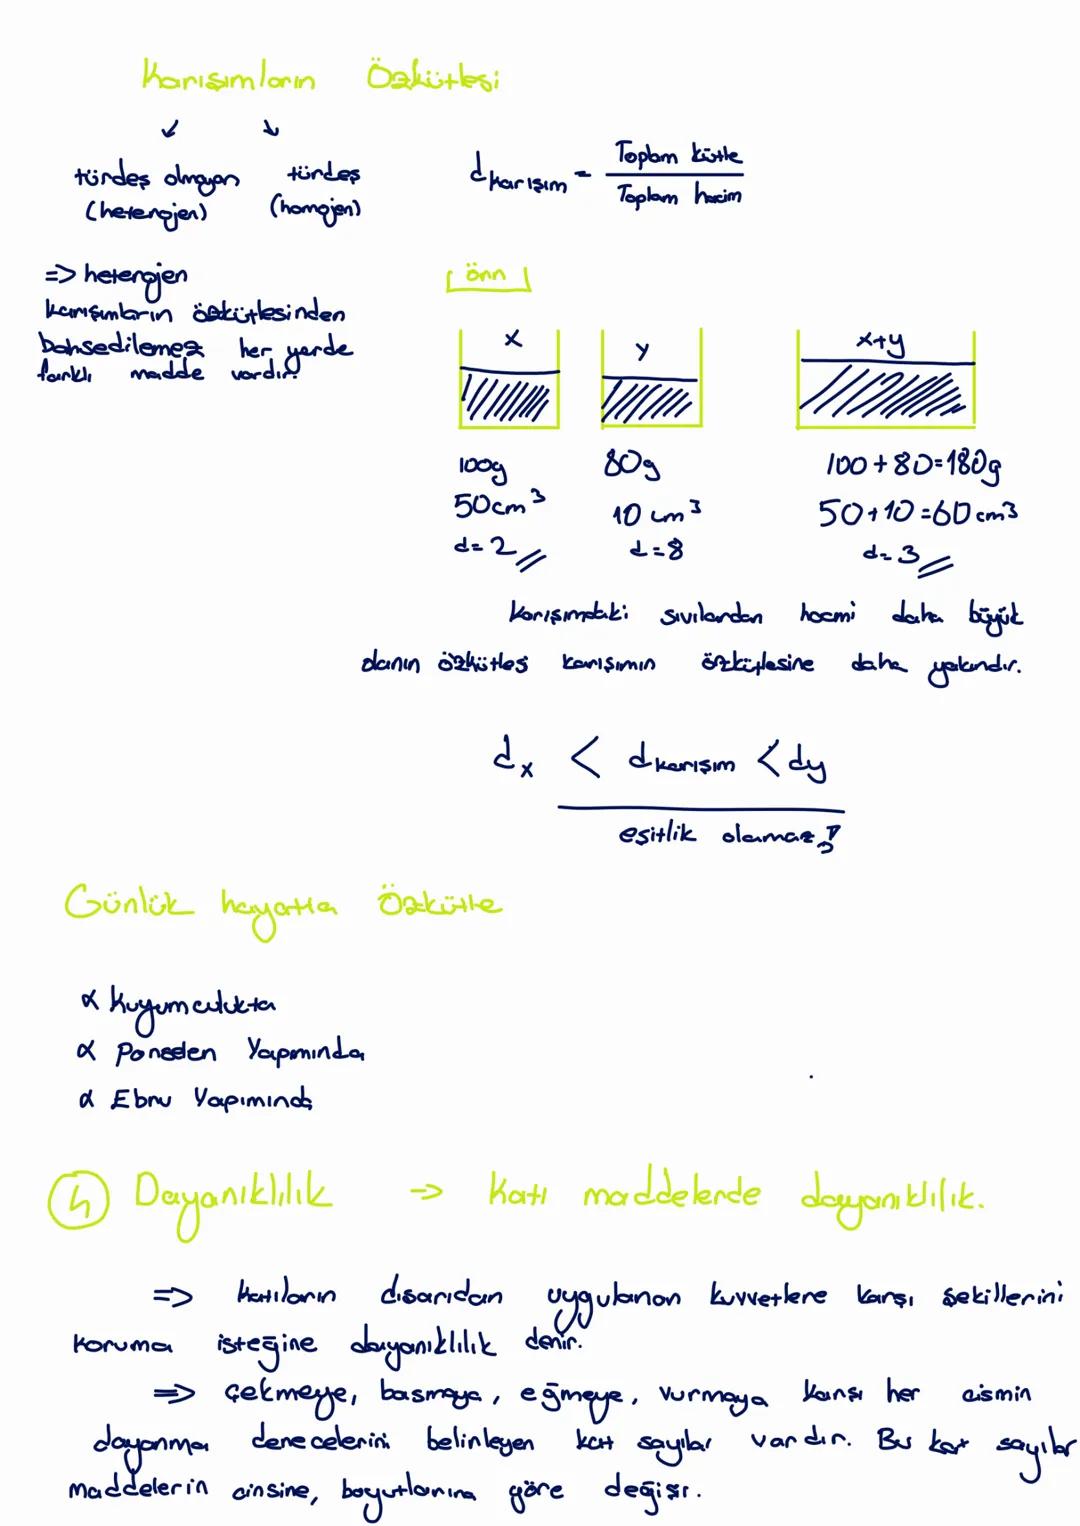 Karışımların Özkütlesi
türdeş olmayan
(heterojen)
türdeş
(homojen)
dkarışım = Toplam kütle
Toplam hacim
=> heterojen
karışımların özkütlesinden
bahsedilemez her yerde
farklı madde vardır.
örnn
x
y
x+y
100g
50cm³
d=2
80g
10 cm³
d=8
100+80=180g
50+10=60cm³
d=3
Karışımdaki sıvılardan hacmi daha büyük
olanın özkütlesi karışımın özkütlesine daha yakındır.
dx < dkarışım < dy
eşitlik olamaz!
Günlük hayatta Özkütle
α Kuyumculukta
α Porselen Yapımında
α Ebru Yapımında
4 Dayanıklılık → Katı maddelerde dayanıklılık.
=> Katıların dısarıdan uygulanan kuvvetlere karşı şekillerini
koruma isteğine dayanıklılık denir.
=> Çekmeye, basmaya, eğmeye, vurmaya karşı her cismin
dayanma derecelerini belirleyen kat sayılar vardır. Bu kat sayılar
maddelerin cinsine, boyutlarına göre değişir.